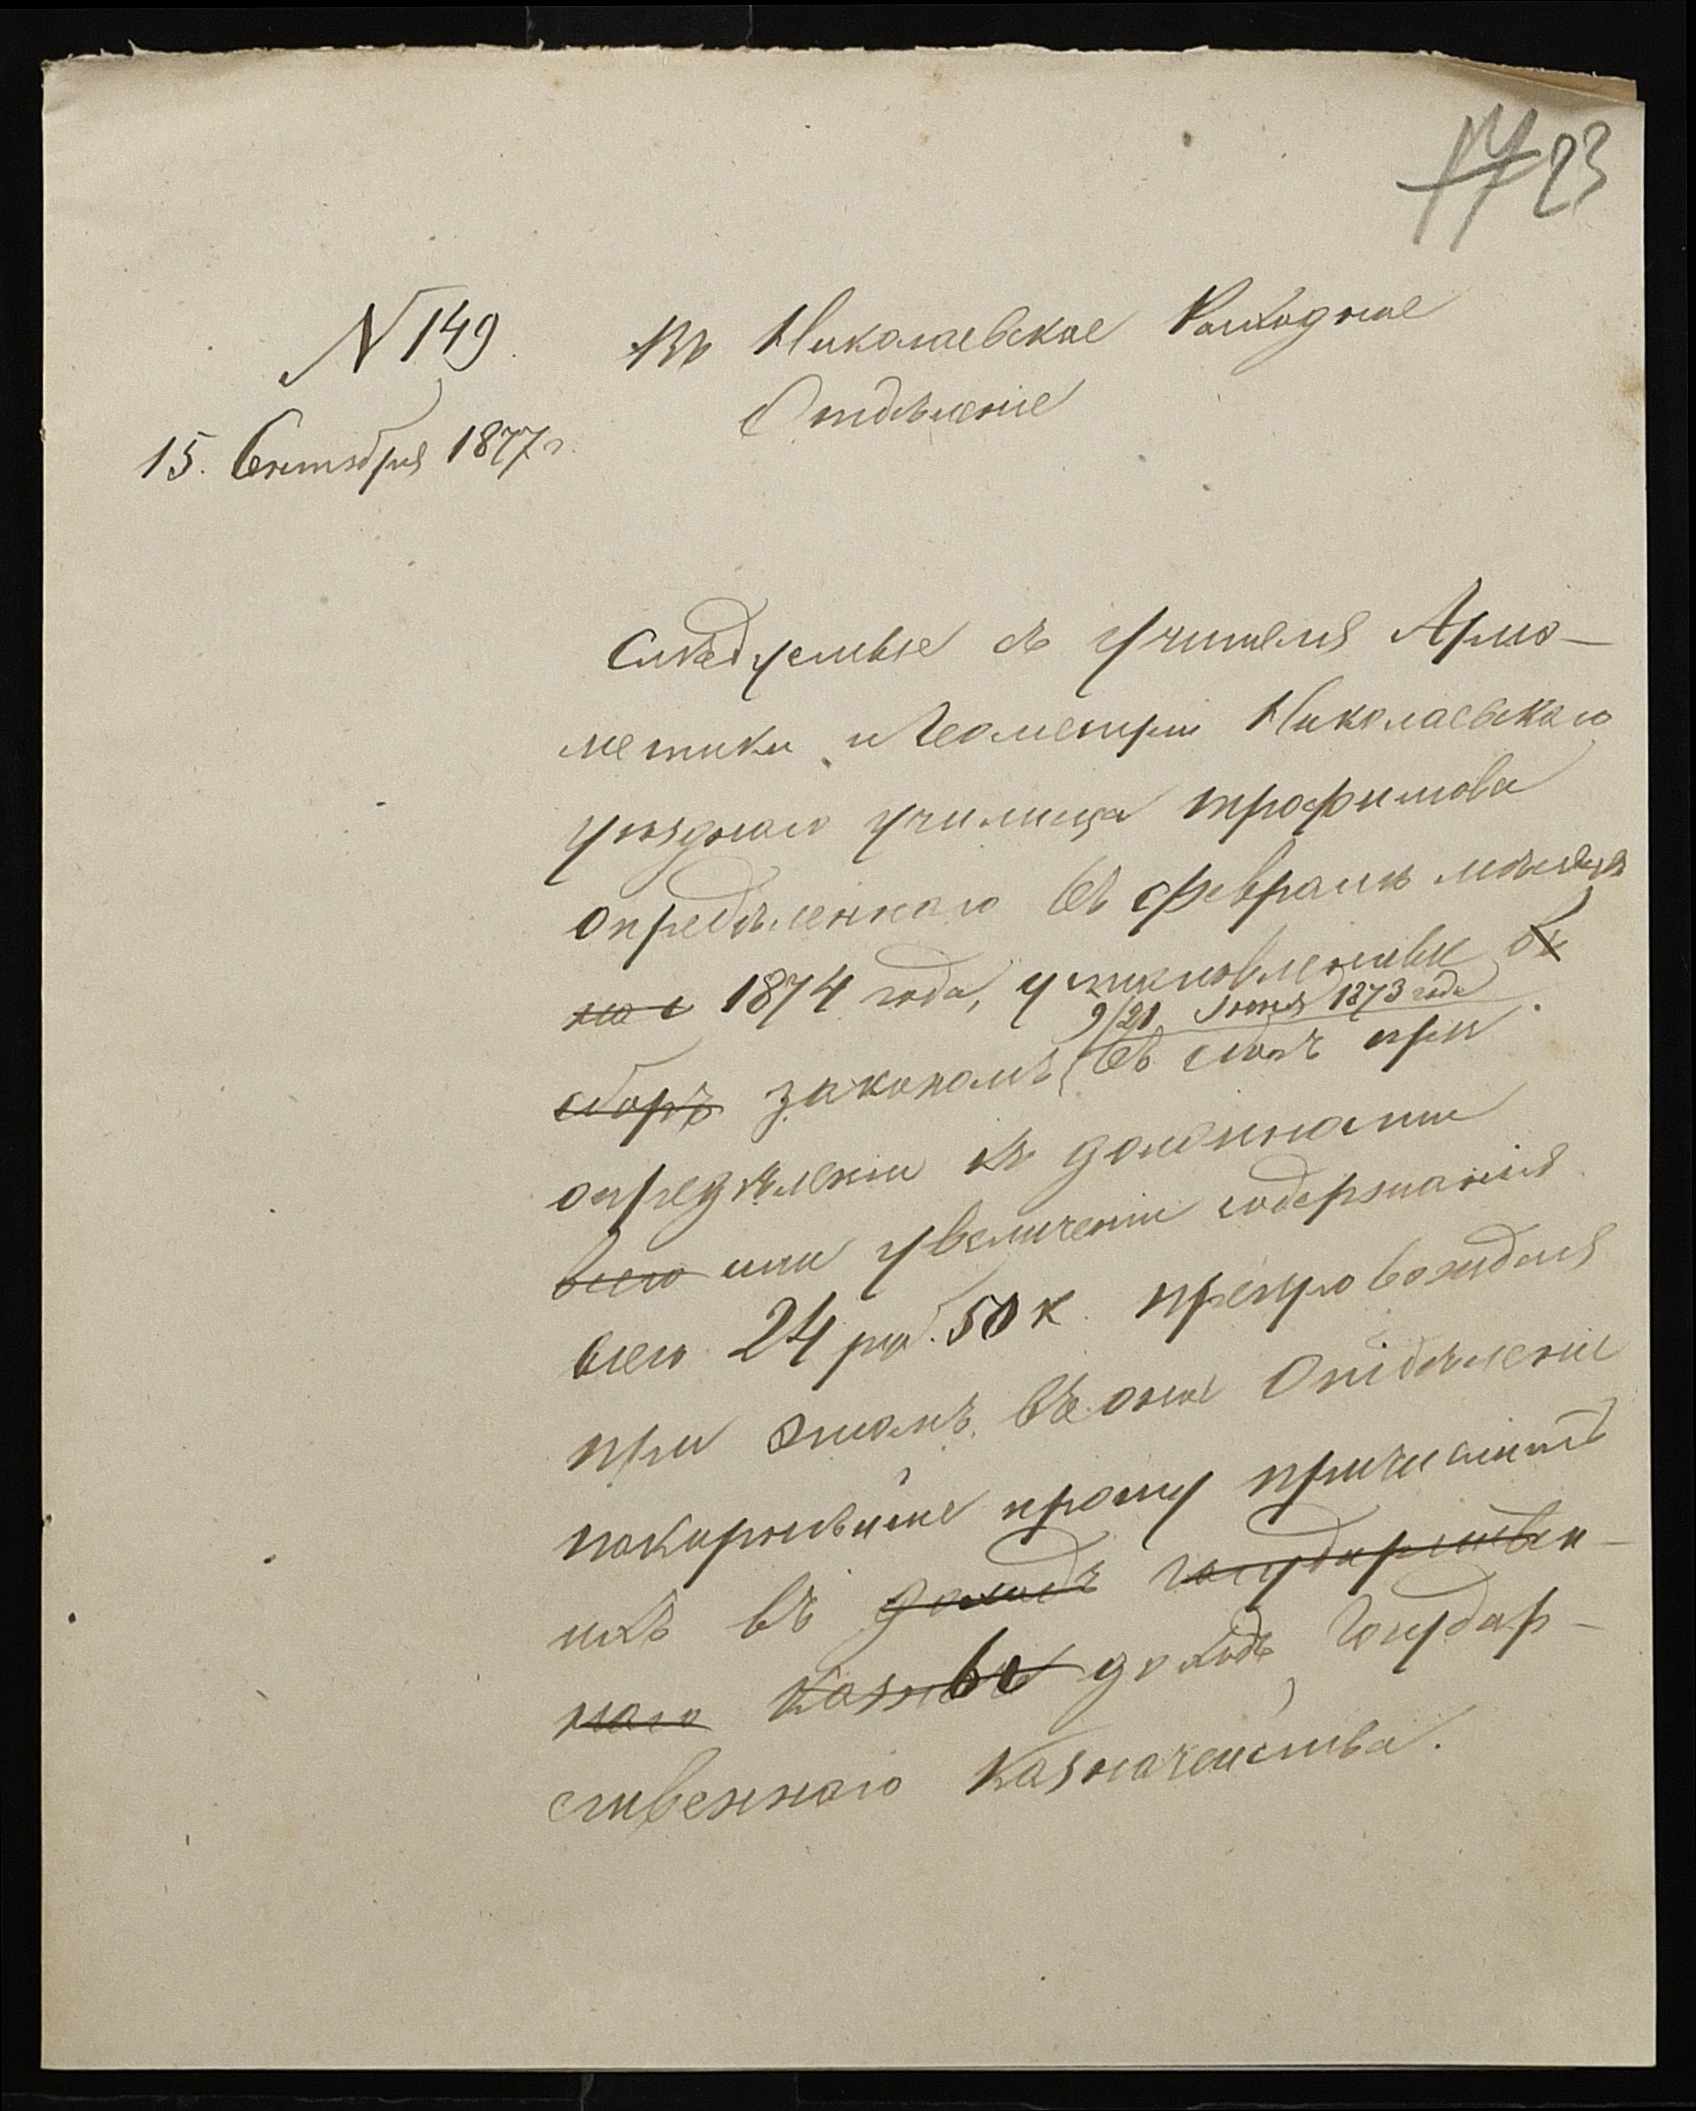 17 23
N 149.
Въ Николаевское Расходное
Отдѣленіе
15. Сентября 1877 г.
Слѣдуемые съ учителя Арио-
метики и Геометріи Николаевскаго
уѣзднаго училища Трофимова
опредѣленнаго въ Февралѣ мѣсяцѣ
1874 года, установленные
9/21 Іюня 1873 года
сборъ закономъ въ сборъ при
опредѣленіи къ должности
всего или увеличеніи содержанія
всего 24 руб. 50 к. препровождая
при этомъ въ оное Отдѣленіе
покорнѣйше прошу причислить
ихъ въ доходъ государствен-
наго Казны въ доходъ Государ-
ственнаго Казначейства.